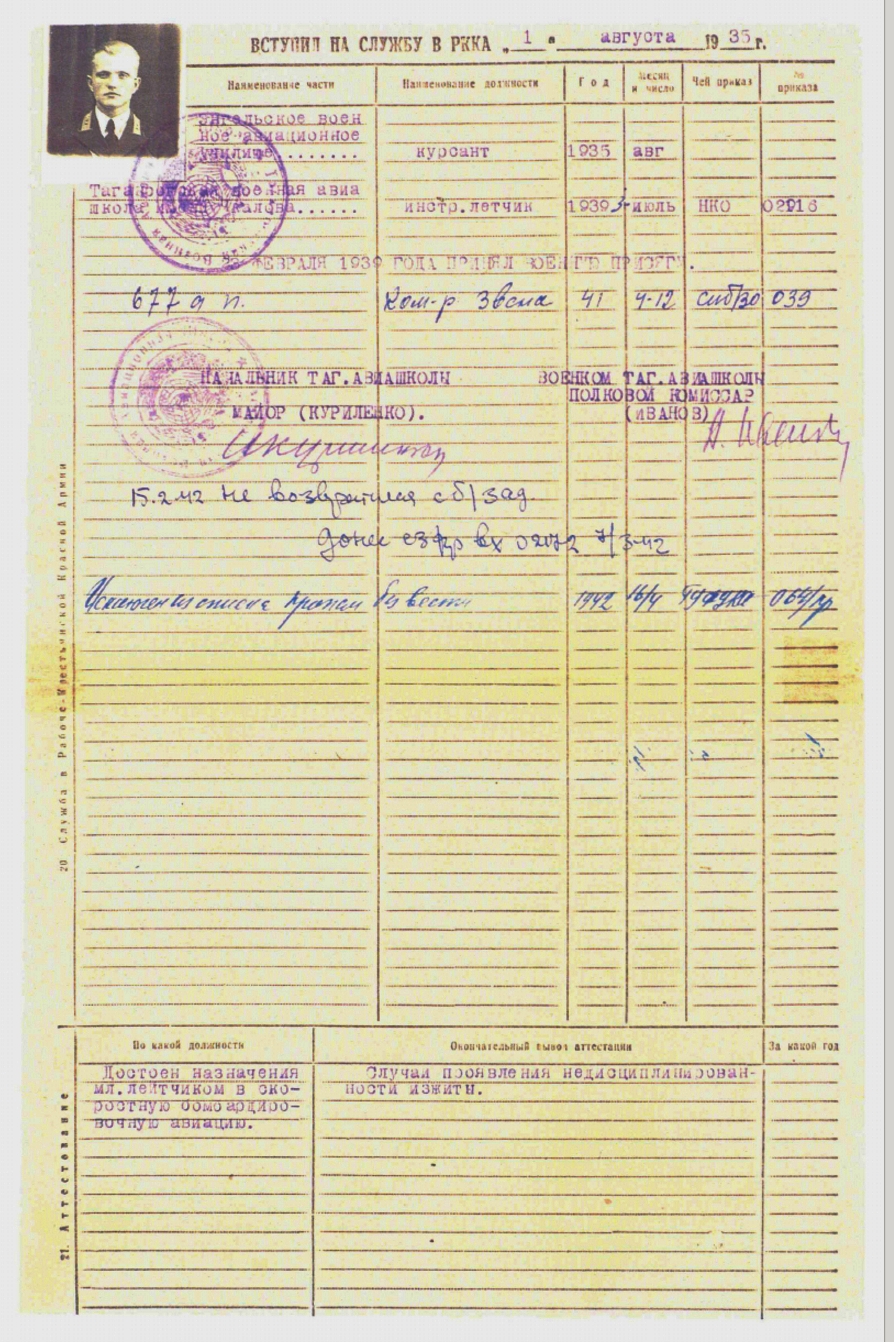 ВСТУПИЛ НА СЛУЖБУ В РККА „ 1 " августа 1935 г.
Наименование части Наименование должности Год Месяц и число Чей приказ № приказа
воен
ное авиационное
училище....... курсант 1935 авг
Таганрогская военная авиа
школа Чкалова...... инстр.летчик 1939 июль НКО
ФЕВРАЛЯ 1939 ГОДА ПРИНЯЛ ПРИСЯГУ.
677 д п. Ком-р Звена 41 4-12 СибВО 039
НАЧАЛЬНИК ТАГ.АВИАШКОЛЫ ВОЕНКОМ ТАГ.АВИАШКОЛЫ
ПОЛКОВОЙ КОМИССАР
МАЙОР (КУРИЛЕНКО). (ИВАНОВ)
15.2.42 не возвратился с б/зад.
донес вх 02072 7/3-42
Исключен из списка пропал без вести 1942 16/4
20 Служба в Рабоче-Крестьянской Красной Армии
По какой должности Окончательный вывод аттестации За какой год
Достоен назначения Случаи проявления недисциплинирован-
мл.лейтчиком в ско- ности изжиты.
ростную бомбардиро-
вочную авиацию.
21. Аттестование